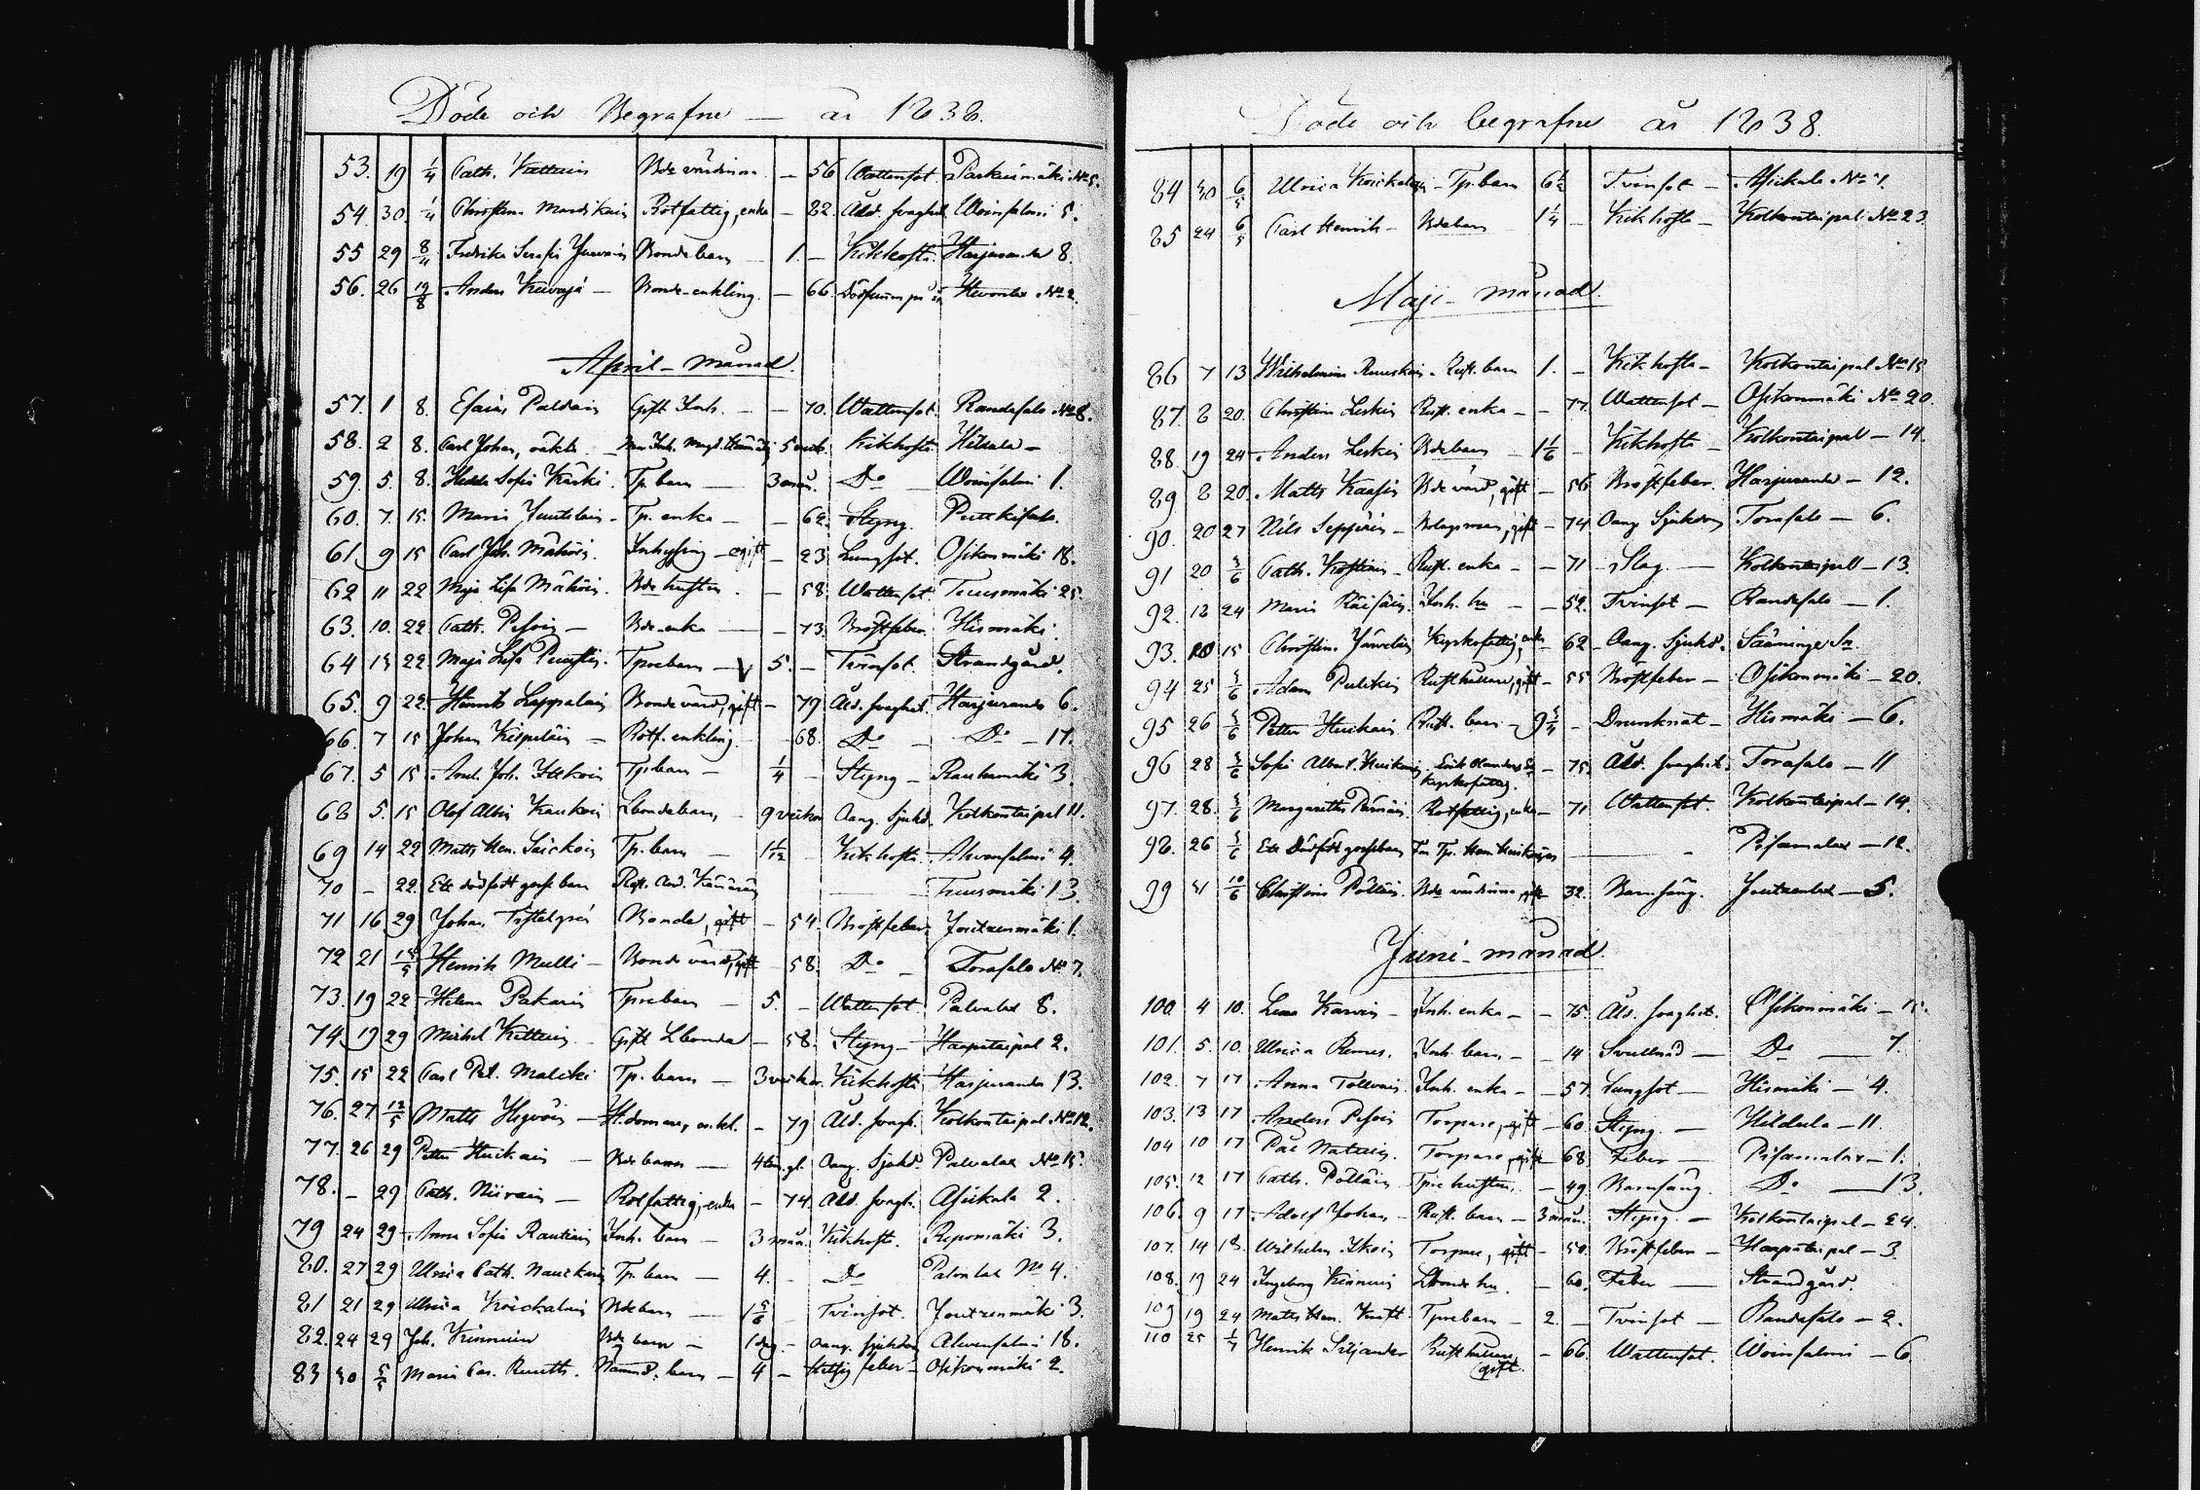 Döde och Begrafne — år 1838.
53. 19 1/4 Cath. Kettuin Bde värdinna — 56 Wattusot Parkuinmäki No 5.
54. 30. 1/4 Christina Mardikain Rotfattig, enka — 82. Åld. svaghet Woinsalmi 5.
55 29 8/4 Fredrika Serafi Bondebarn 1. — Kikhosta Harjuranda 8.
56. 26 Anders Bonde-enkling — 66 No 2.
April-månad.
57. 1 8. Esaias Gift Inh. — 70. Wattusot Randasalo No 8.
58. 2 8. Carl Johan, oäkta — 5 veck. Kikhosta Hiltula —
59. 5. 8. Hedda Sofia Kärki Tp. barn — 3 mån. Do Woinsalmi 1.
60. 7. 15. Maria Juutilain Tp. enka — 62. Styng. Putkisalo.
61 9 15 Carl Joh. Mähöin. Inhysing — ogift — 23 Lungsot. Osikonmäki 18.
62 11 22 Maja Lisa Mähöin. Bde hustru — 58 Wattusot Tuusmäki 25
63. 10. 22 Cath. Pesoin — Bde-enka — 73. Bröstfeber Hismäki.
64 15 22. Maja Lisa Tprebarn — 5. — Tvinsot Strandgård.
65. 9 22. Henrik Lappalain Bondevärd, gift — 79 Åld. svaghet. Harjuranda 6.
66. 7 15 Johan Rotf. enkling. 68. Do — Do — 17.
67. 5 15 And. Joh. Tprbarn — 1/4 — Styng — Rauhamäki 3.
68 5. 15 Olof Albin Kaukoin Lbondebarn, 9 veckor Oang. Sjukd. Kolkontaipal 11.
69 14 22 Matts Hen. Tp. barn — 1 1/12 — Kikhosta Ahvensalmi 4.
70 — 22. Ett dödfödt gosse barn Tuusmäki 13.
71 16 29 Johan Bonde, gift — 54. Bröstfeber Joutzenmäki 1.
72 21 Henrik Mulli — Bonde värd, gift — 58. Do — Torasalo No 7.
73. 19 22 Helena Pakarin Tprebarn — 5. — Wattusot Palvalax 8.
74. 19 29 Michel Kettuin Gift Lbonde — 58. Styng — Haapataipal 2.
75. 15 22 Carl Pet. Malcki Tp. barn — 3 veckor. Kikhosta Harjuranda 13.
76. 27 12/5 Matts — 79 Åld. svagh. Kolkontaipal No 12.
77. 26 29 Petter Huckain — Bde barn — Oang. Sjukd. Palvalax No 15.
78. — 29 Cath. Niirain — Rotfattig, enka — 74. Åld. svagh. Asickala 2.
79 24 29 Anna Sofia Rautiain Inh. barn — 3 mån. Kikhosta. Reponmäki 3.
80. 27 29 Ulrica Cath. Tp. barn — 4. — Do Palvalax No 4.
81 21 29 Ulrica Koickalain Bdebarn — 1 5/6 Tvinsot. Joutzenmäki 3.
82. 24 29 Joh. Kinnuin Bde barn — 1 dag — oang. sjukdom Ahvensalmi 18.
83 30 barn — 4 — feber — Osikonmäki 2.
Döde och begrafne år 1838.
84 30 6/5 Ulrica Koickalain — Tp. barn 6 1/2 Tvinsot — Asickala No 7.
85 24 6/5 Carl Henrik — Bdebarn 1 1/4 — Kikhosta — Kolkontaipal No 23
Maji-månad.
86 7 13 Wilhelmina — Rust. barn 1. — Kikhosta — Kolkontaipal No 15
87. 8 20. Christina Leskin Rust. enka — — 77. Wattusot — Osikonmäki No 20.
88. 19 24 Anders Leskin Bdebarn — 1 1/6 — Kikhosta — Kolkontaipal — 14.
89 8 20. Matts Bde värd, gift — 56 Bröstfeber. Harjuranda — 12.
90. 20 27 Nils Seppäin — Bolagsman, gift — 74 Oang Sjukdom Torasalo — 6.
91 20 3/6 Cath. — Rust. enka — — 71 — Slag. — Kolkontaipal — 13.
92. 18 24 Maria Räisäin Inh. hu — — 52. Tvinsot — Randasalo — 1.
93. 10 15 Christina Kyrkofattig, enka 62 — Oang. Sjukd. Sääminge Sn
94 25 3/6 Adam Pulkin Rusthållare, gift — 55 Bröstfeber — Osikonmäki — 20.
95 26 3/6 Petter Huckain Rust. barn — 9 3/4 — Drunknat — Hismäki — 6.
96 28 3/6 Sofia Kyrkofattig. — 75. Åld. svaghet. Torasalo — 11
97. 28. 3/6 Margaretha Rotfattig, enka — 71 Wattusot. Kolkontaipal — 14.
98. 26 3/6 Ett Dödfödt gossebarn Pisamalax — 12.
99 31 10/6 Christina Pöllain Bde värdinna, gift 32. Barnsäng. Joutzenlax — 5.
Juni-månad.
100. 4 10. Lena Karvin — Inh. enka — — 75. Åld. svaghet. Osikonmäki — 15.
101. 5. 10. Ulrica Remes. Inh. barn — — 14 Svullnad — Do — 7.
102. 7 17 Anna Tollvain Inh. enka — — 57. Lungsot — Hismäki — 4.
103. 13 17 Anders Pesoin Torpare, gift — 60 Styng. — Hildula — 11.
104 10 17 Pål Torpare, gift — 68 Feber — Pisamalax — 1.
105. 12 17 Cath. Pöllain Tpre hustru, — 49 Barnsäng. Do — 13.
106. 9 17 Adolf Johan — Rust. barn — 3 mån. Styng. — Kolkontaipal — 24.
107. 14 18 Wilhelm Torpare, gift — 50. Bröstfeber — Haapataipal — 3.
108. 19 24 Ingeborg Kinnuin Lbonde hu. — 60. Feber — Strandgård.
109 19 24 Matts Hen. Tprebarn — 2. — Tvinsot — Randasalo — 2.
110 25 1/7 Henrik Siljander Rusthållare gift. — 66. Wattusot. Woinsalmi — 6.